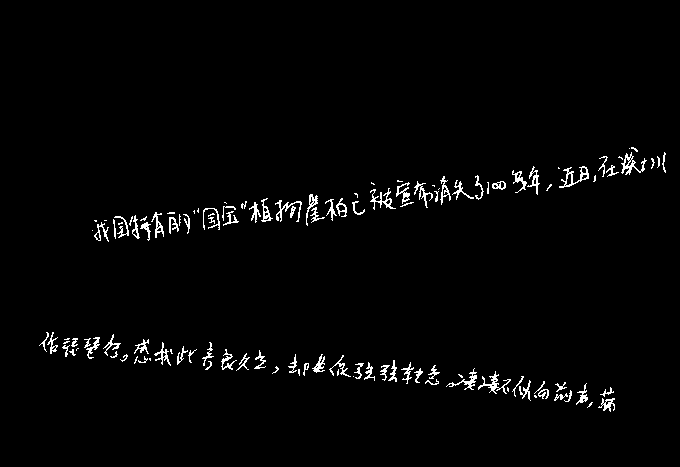 我国特有的“国宝”植物崖柏已被宣布消失了100多年,近日,在深圳
作琵琶行。感我此言良久立,却坐促弦弦转急。凄凄不似向前声,满